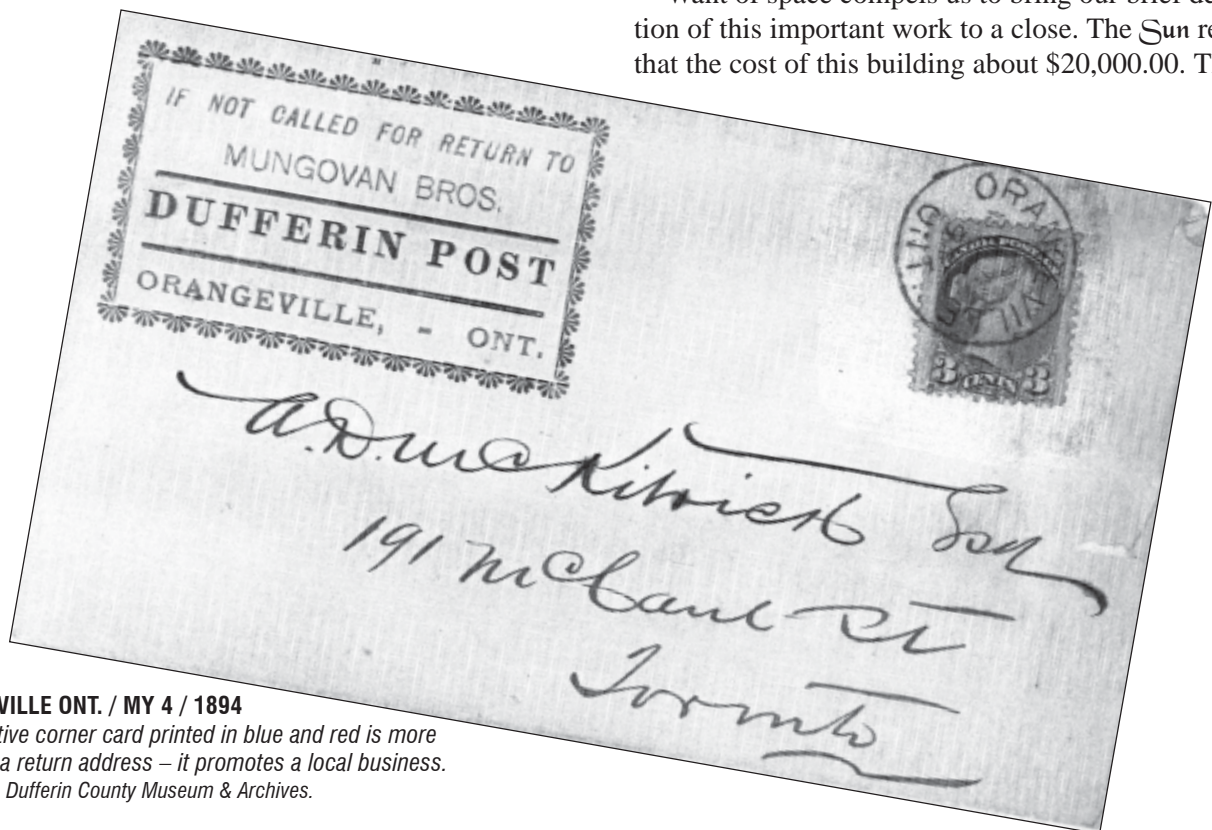 Want of space compels us to bring our brief de
tion of this important work to a close. The Sun re
that the cost of this building about $20,000.00. T
IF NOT CALLED FOR RETURN TO
MUNGOVAN BROS.
DUFFERIN POST
ORANGEVILLE, - ONT.
ORANGEVILLE
ONT.
3 CENTS 3
A.D. McKitrick Esq
191 McCaul St
Toronto
VILLE ONT. / MY 4 / 1894
tive corner card printed in blue and red is more
a return address – it promotes a local business.
Dufferin County Museum & Archives.